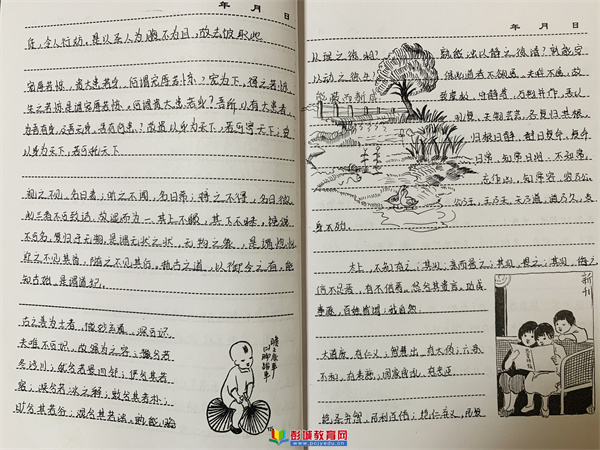 年 月 日
妨，令人行妨。是以圣人为腹不为目，故去彼取此。
宠辱若惊，贵大患若身。何谓宠辱若惊？宠为下，得之若惊，
失之若惊，是谓宠辱若惊。何谓贵大患若身？吾所以有大患者，
为吾有身，及吾无身，吾有何患？故贵以身为天下，若可寄天下；爱
以身为天下，若可托天下。
视之不见，名曰夷；听之不闻，名曰希；搏之不得，名曰微。
此三者不可致诘，故混而为一。其上不皦，其下不昧，绳绳
不可名，复归于无物。是谓无状之状，无物之象，是谓惚恍。
迎之不见其首，随之不见其后。执古之道，以御今之有。能
知古始，是谓道纪。
古之善为士者，微妙玄通，深不可识。
夫唯不可识，故强为之容：豫兮若
冬涉川；犹兮若畏四邻；俨兮其若
客；涣兮若冰之释；敦兮其若朴；
旷兮其若谷；混兮其若浊。孰能晦
瞻之在車
以腳踏車
年 月 日
以理之徐明？孰能浊以静之徐清？孰能安
以动之徐生？保此道者不欲盈。夫唯不盈，故
能蔽而新成。致虚极，守静笃。万物并作，吾以
观复。夫物芸芸，各复归其根。
归根曰静，静曰复命。复命
曰常，知常曰明。不知常，
妄作凶。知常容，容乃公，
公乃王，王乃天，天乃道，道乃久，没
身不殆。
太上，不知有之；其次，亲而誉之；其次，畏之；其次，侮之。
信不足焉，有不信焉。悠兮其贵言。功成
事遂，百姓皆谓：我自然。
大道废，有仁义；智慧出，有大伪；六亲
不和，有孝慈；国家昏乱，有忠臣。
绝圣弃智，民利百倍；绝仁弃义，民复
新刊
彭城教育网
www.pcjyedu.cn